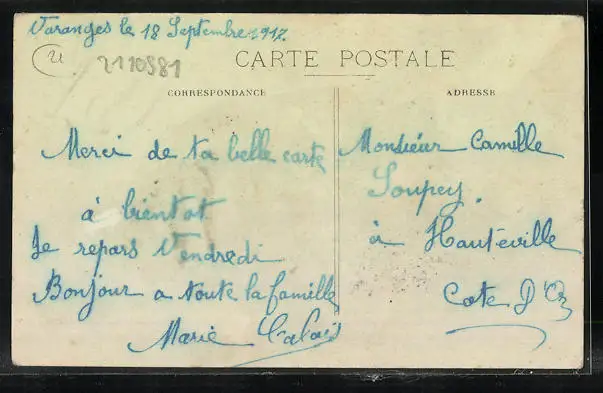 Varanges le 18 Septembre 1917
21
2110581
CARTE POSTALE
CORRESPONDANCE
ADRESSE
Merci de ta belle carte
à bientot
Je repars Vendredi
Bonjour a toute la famille
Marie Calais
Monsieur Camille
Loupey.
à Hauteville
Cote D'Or